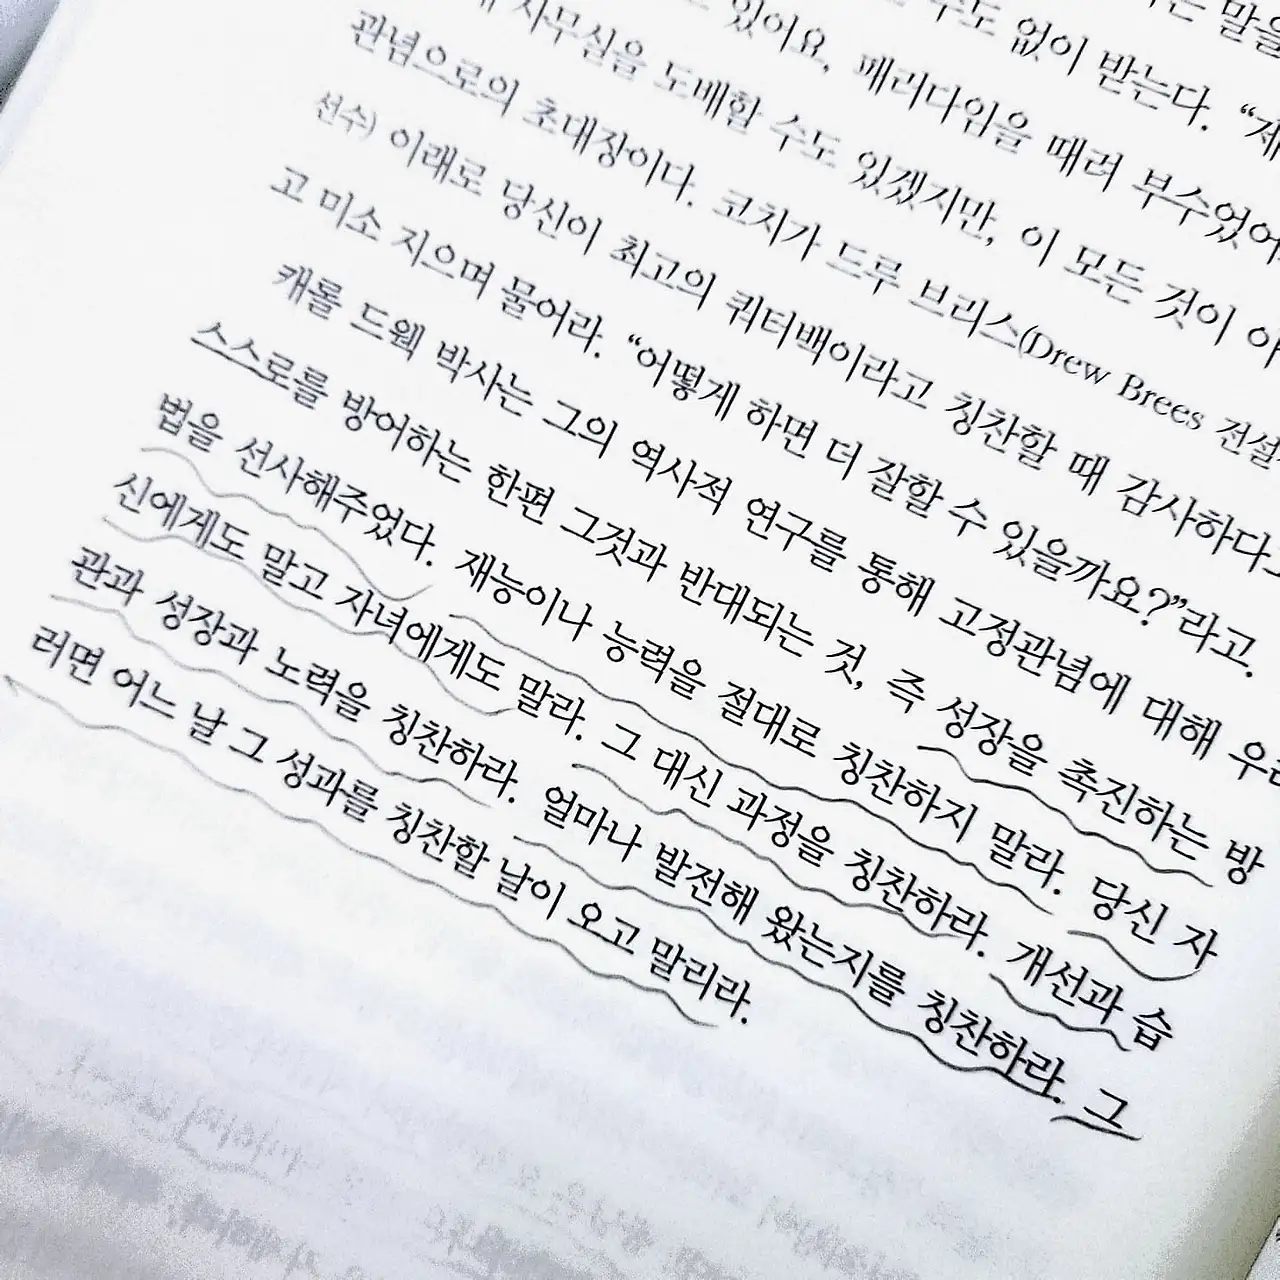 말을
없이 받는다. “제
있어요, 패러다임을 때려 부수었어
사무실을 도배할 수도 있겠지만, 이 모든 것이
관념으로의 초대장이다. 코치가 드루 브리스(Drew Brees 전설
선수) 이래로 당신이 최고의 쿼터백이라고 칭찬할 때 감사하다
고 미소 지으며 물어라. “어떻게 하면 더 잘할 수 있을까요?”라고.
캐롤 드웩 박사는 그의 역사적 연구를 통해 고정관념에 대해 우리
스스로를 방어하는 한편 그것과 반대되는 것, 즉 성장을 촉진하는 방
법을 선사해주었다. 재능이나 능력을 절대로 칭찬하지 말라. 당신 자
신에게도 말고 자녀에게도 말라. 그 대신 과정을 칭찬하라. 개선과 습
관과 성장과 노력을 칭찬하라. 얼마나 발전해 왔는지를 칭찬하라. 그
러면 어느 날 그 성과를 칭찬할 날이 오고 말리라.